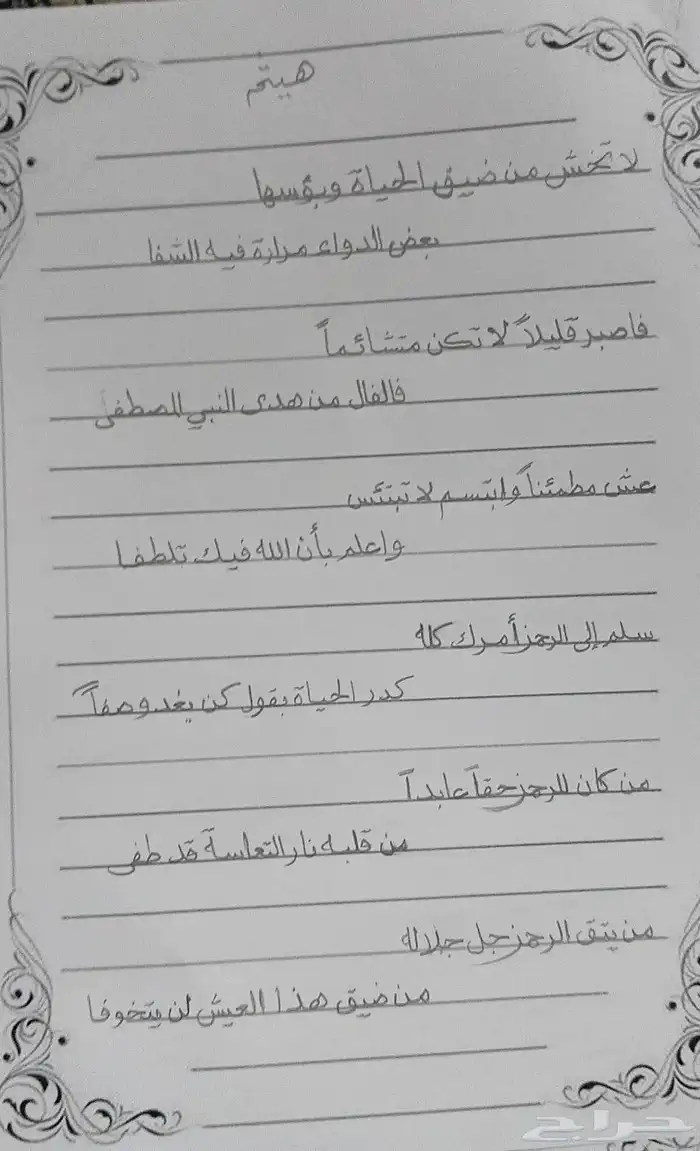 هيثم
لا تخش من ضيق الحياة وبؤسها
بعض الدواء مرارة فيه الشفا
فاصبر قليلاً لا تكن متشائماً
فالفال من هدى النبي المصطفى
عش مطمئناً وابتسم لا تبتئس
واعلم بأن الله فيك تلطفا
سلم إلى الرحمن أمرك كله
كدر الحياة بقول كن يغدو صفاً
من كان للرحمن حقاً عابداً
من قلبه نار التعاسة قد طفى
من يتق الرحمن جل جلاله
من ضيق هذا العيش لن يتخوفا
حراج